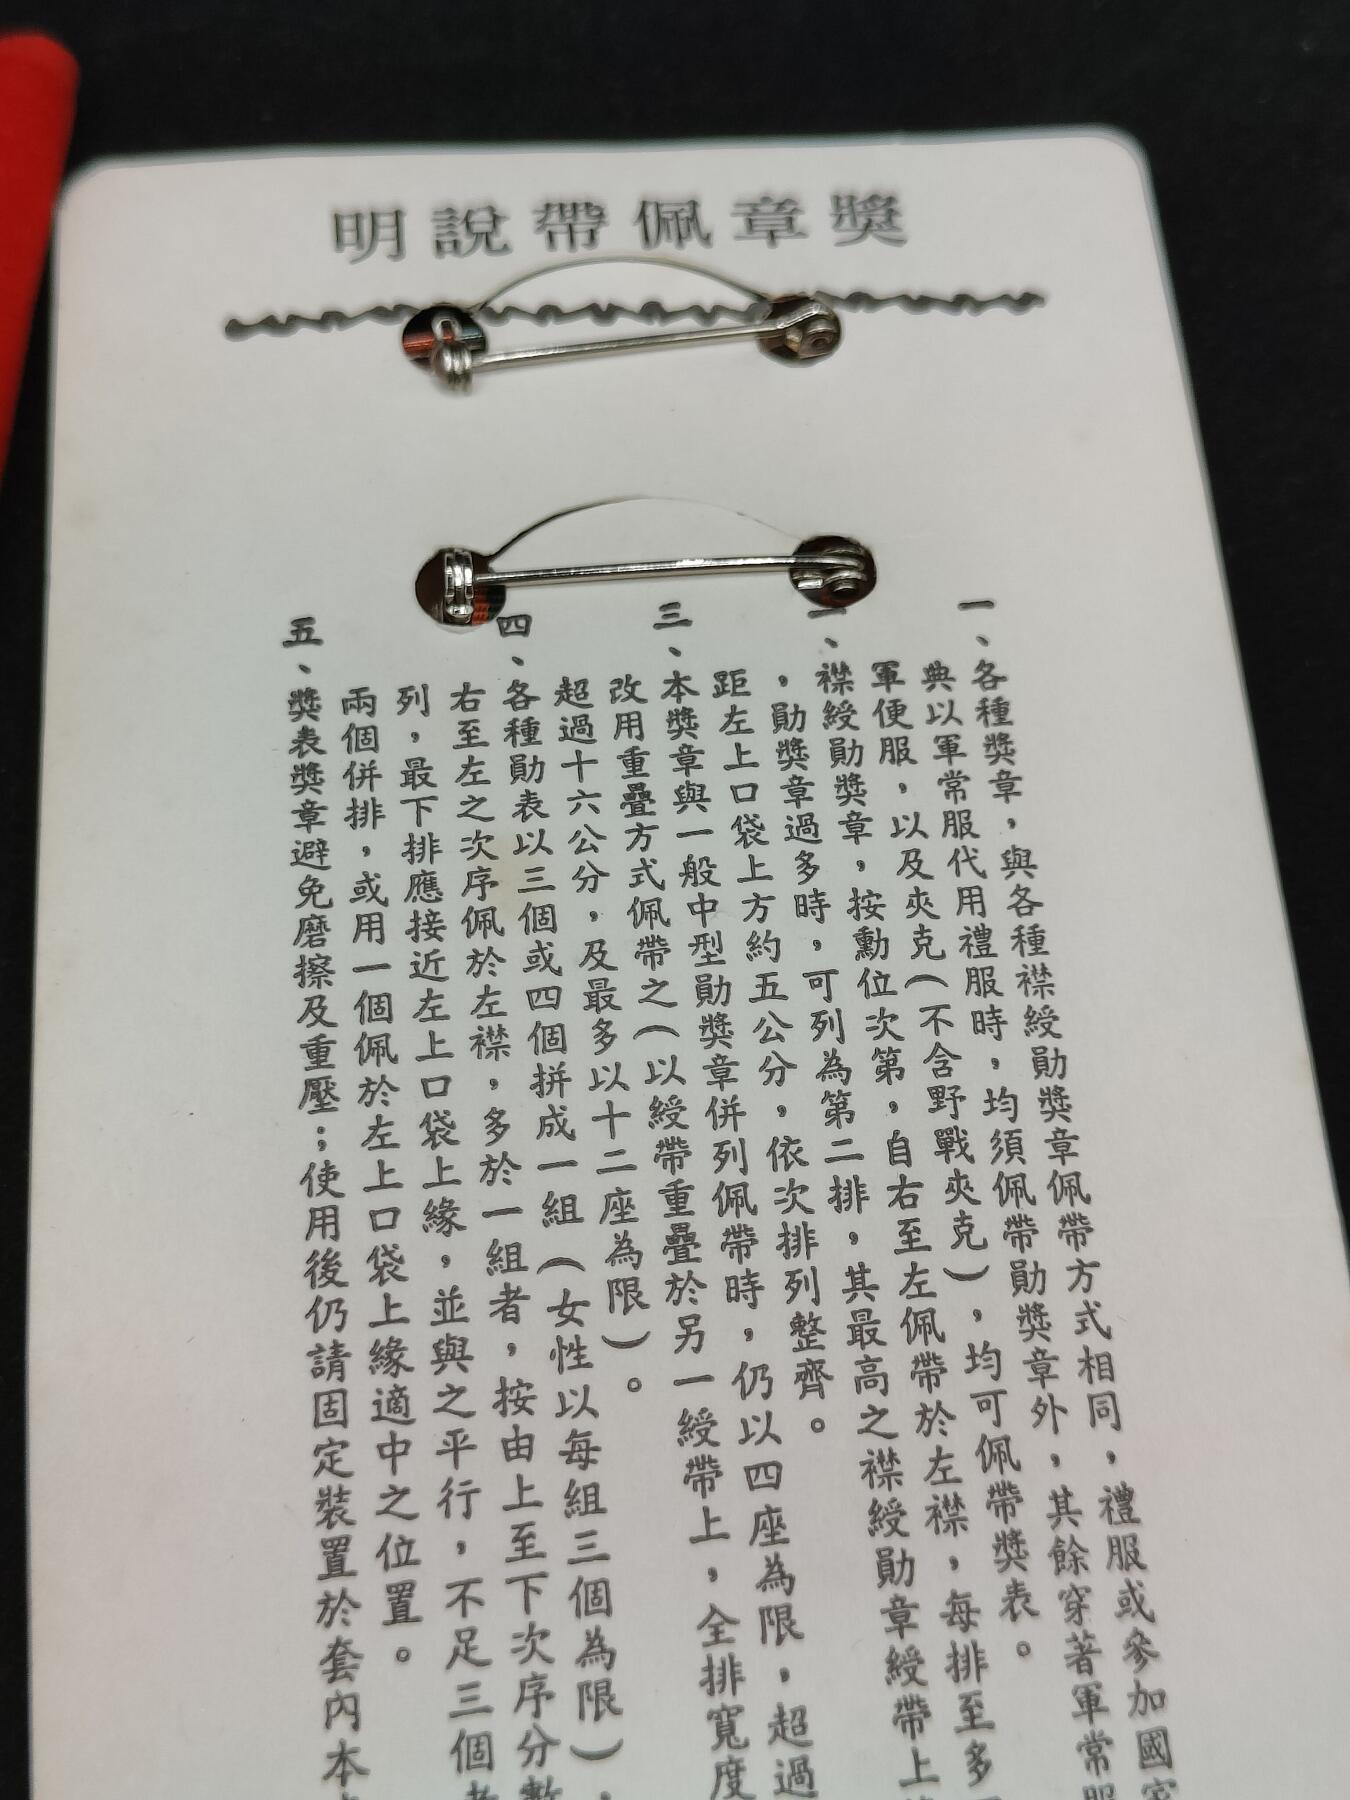 獎章佩帶說明
一、各種獎章，與各種襟綬勛獎章佩帶方式相同，禮服或參加國
典以軍常服代用禮服時，均須佩帶勛獎章外，其餘穿著軍常
軍便服，以及夾克（不含野戰夾克），均可佩帶獎表。
襟綬勛獎章，按勳位次第，自右至左佩帶於左襟，每排至多
，勛獎章過多時，可列為第二排，其最高之襟綬勛章綬帶上
距左上口袋上方約五公分，依次排列整齊。
三、本獎章與一般中型勛獎章併列佩帶時，仍以四座為限，超過
改用重疊方式佩帶之（以綬帶重疊於另一綬帶上，全排寬度
超過十六公分，及最多以十二座為限）。
四、各種勛表以三個或四個拼成一組（女性以每組三個為限），
右至左之次序佩於左襟，多於一組者，按由上至下次序分
列，最下排應接近左上口袋上緣，並與之平行，不足三個
兩個併排，或用一個佩於左上口袋上緣適中之位置。
五、獎表獎章避免磨擦及重壓；使用後仍請固定裝置於套內本